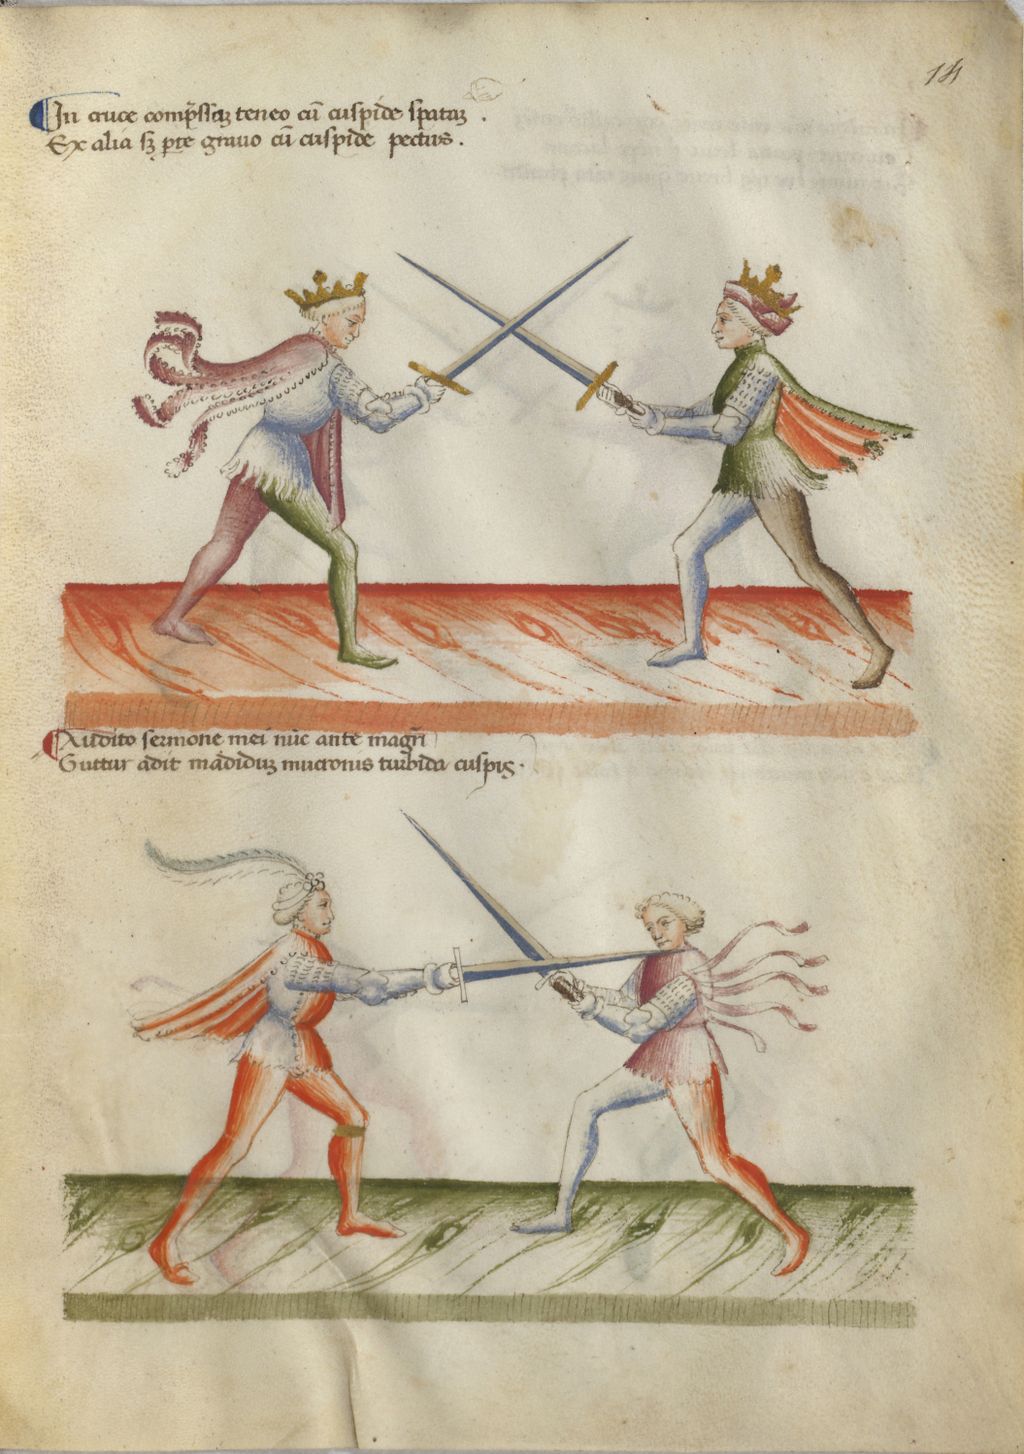 14
In cruce comp̃ssaʒ teneo cũ cuspide spataʒ .
Ex alia sʒ p̱te grauo cũ cuspide pectus .
Audito sermone mei nũc ante magr̃i
Guttur adit madiduʒ mucronis turbida cuspis .